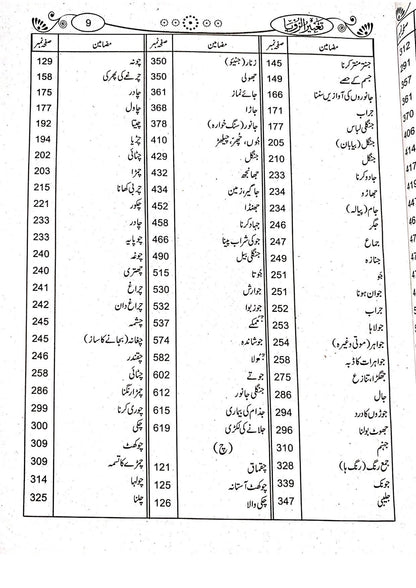 9
تعبیر الرؤیا
مضامین صفحہ نمبر
جنتر منتر کرنا 145
جسم کے حصے 149
جانوروں کی آوازیں سننا 166
جراب 171
جنگلی لباس 177
جنگل (بیابان) 205
جنگل 210
جادو کرنا 233
جھاڑو 234
جام (پیالہ) 234
جگر 246
جماع 247
جنازہ 249
جو 251
جوان ہونا 251
جراب 252
جولاہا 253
جواہر (موتی وغیرہ) 254
جواہرات کا ڈبہ 258
جھگڑا، تنازع 275
جال 286
جوڑوں کا درد 294
جھوٹ بولنا 296
جہنم 310
جمع رنگ (رنگ ہا) 328
جونک 339
جلیبی 347
مضامین صفحہ نمبر
زنار (جنیؤ) 350
جھولی 350
جائے نماز 361
جاڑا 368
جانور (سنگ خوارہ) 378
جوں، مچھر، چیچڑ 410
جنگل 429
جھانجھ 432
جاگیر، زمین 434
جھنڈا 452
جہاد کرنا 458
جو کی شراب پینا 466
جنگلی بیل 490
جوتا 515
جوارش 530
جوزبوا 532
537
جوشاندہ 574
582
جوتے 602
جنگلی جانور 612
جذام کی بیماری 615
جلانے کی لکڑی 619
(چ)
چقماق 121
چوکھٹ آستانہ 125
چکی والا 126
مضامین صفحہ نمبر
چونہ 129
چمڑے کی 158
چادر 175
چاول 177
چیتا 192
چڑیا 194
چٹائی 202
چمڑا 203
چربی کھانا 215
چکور 221
چادر 233
چوپایہ 233
چوغہ 240
چھتری 240
چراغ 241
چراغ دان 242
چشمہ 245
چغانہ (بجانے کا ساز) 245
چقندر 246
چٹائی 258
چمڑا رنگنا 286
چوری کرنا 299
چکی 300
چوکھٹ 309
چمڑے کا تسمہ 309
چولہا 314
چلنا 325
312
291
357
361